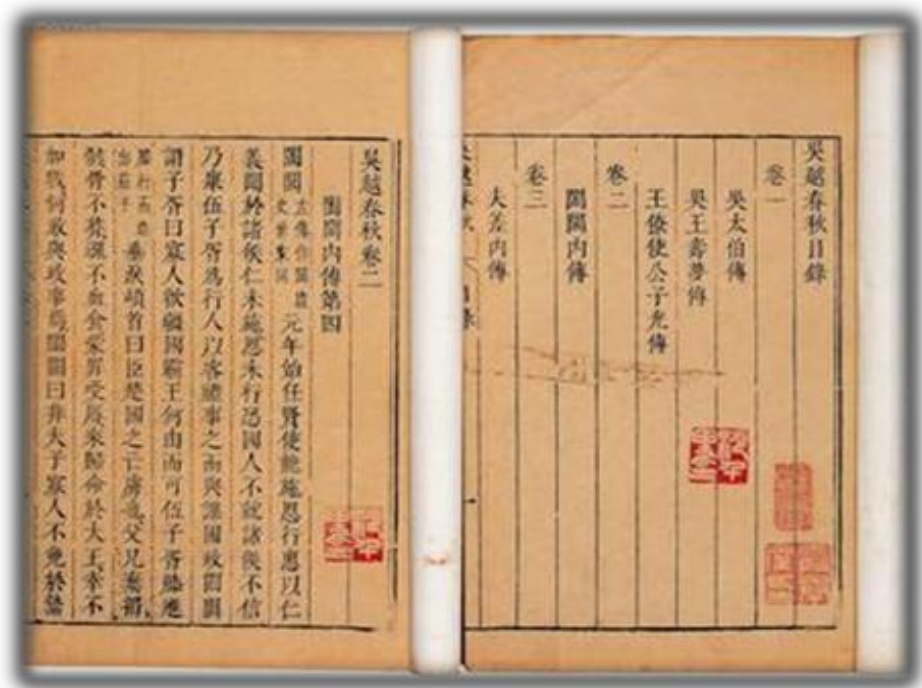 吳越春秋目錄
卷一
吳太伯傳
吳王壽夢傳
王僚使公子光傳
卷二
闔閭内傳
卷三
夫差内傳
吳越春秋卷二
闔閭内傳第四
闔閭 元年始任賢使能施恩行惠以仁
義聞於諸侯仁未施恩未行恐國人不就諸侯不信
乃舉伍子胥爲行人以客禮事之而與謀國政闔閭
謂子胥曰寡人欲彊國霸王何由而可伍子胥膝進
垂淚頓首曰臣楚國之亡虜也父兄棄捐
骸骨不葬魂不血食蒙罪受辱來歸命於大王幸不
加戮何敢與政事焉闔閭曰非夫子寡人不免於縶